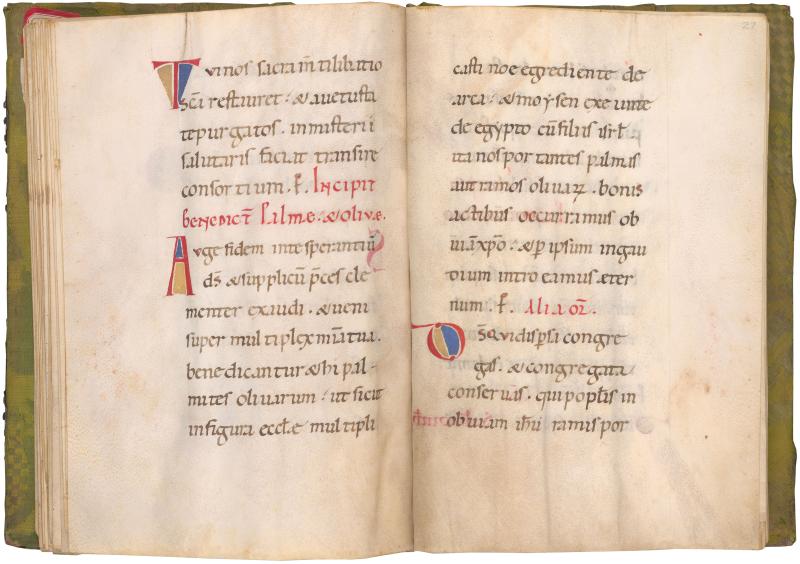 Tui nos sacram̄ti libatio
sc̄a restauret · & a uetusta
te purgatos · in misterii
salutaris faciat transire
consortium · ꝑ̄. Incipit
benedict̄ Palme · & olivę.
Auge fidem in te sperantiū
ds̄ & supplicū p̄ces cle
menter exaudi · & ueni
super multiplex mīa tua ·
benedicantur & hi pal-
mites oliuarum · ut sicut
in figura eccl̄e multipli
27
casti noe egrediente de
arca · & moẏsen exeunte
de egypto cū filiis isrl̄
ita nos portantes palmas
aut ramos oliuaꝝ · bonis
actibus occurramus ob
uiā xp̄o · & ꝑ ipsum in gau
dium introeamus ęter
num · Alia or̄.
Ds̄ qui dispsa congre
gas · & congregata
conseruas · qui popl̄is in
obuiam ih̄u ramis por